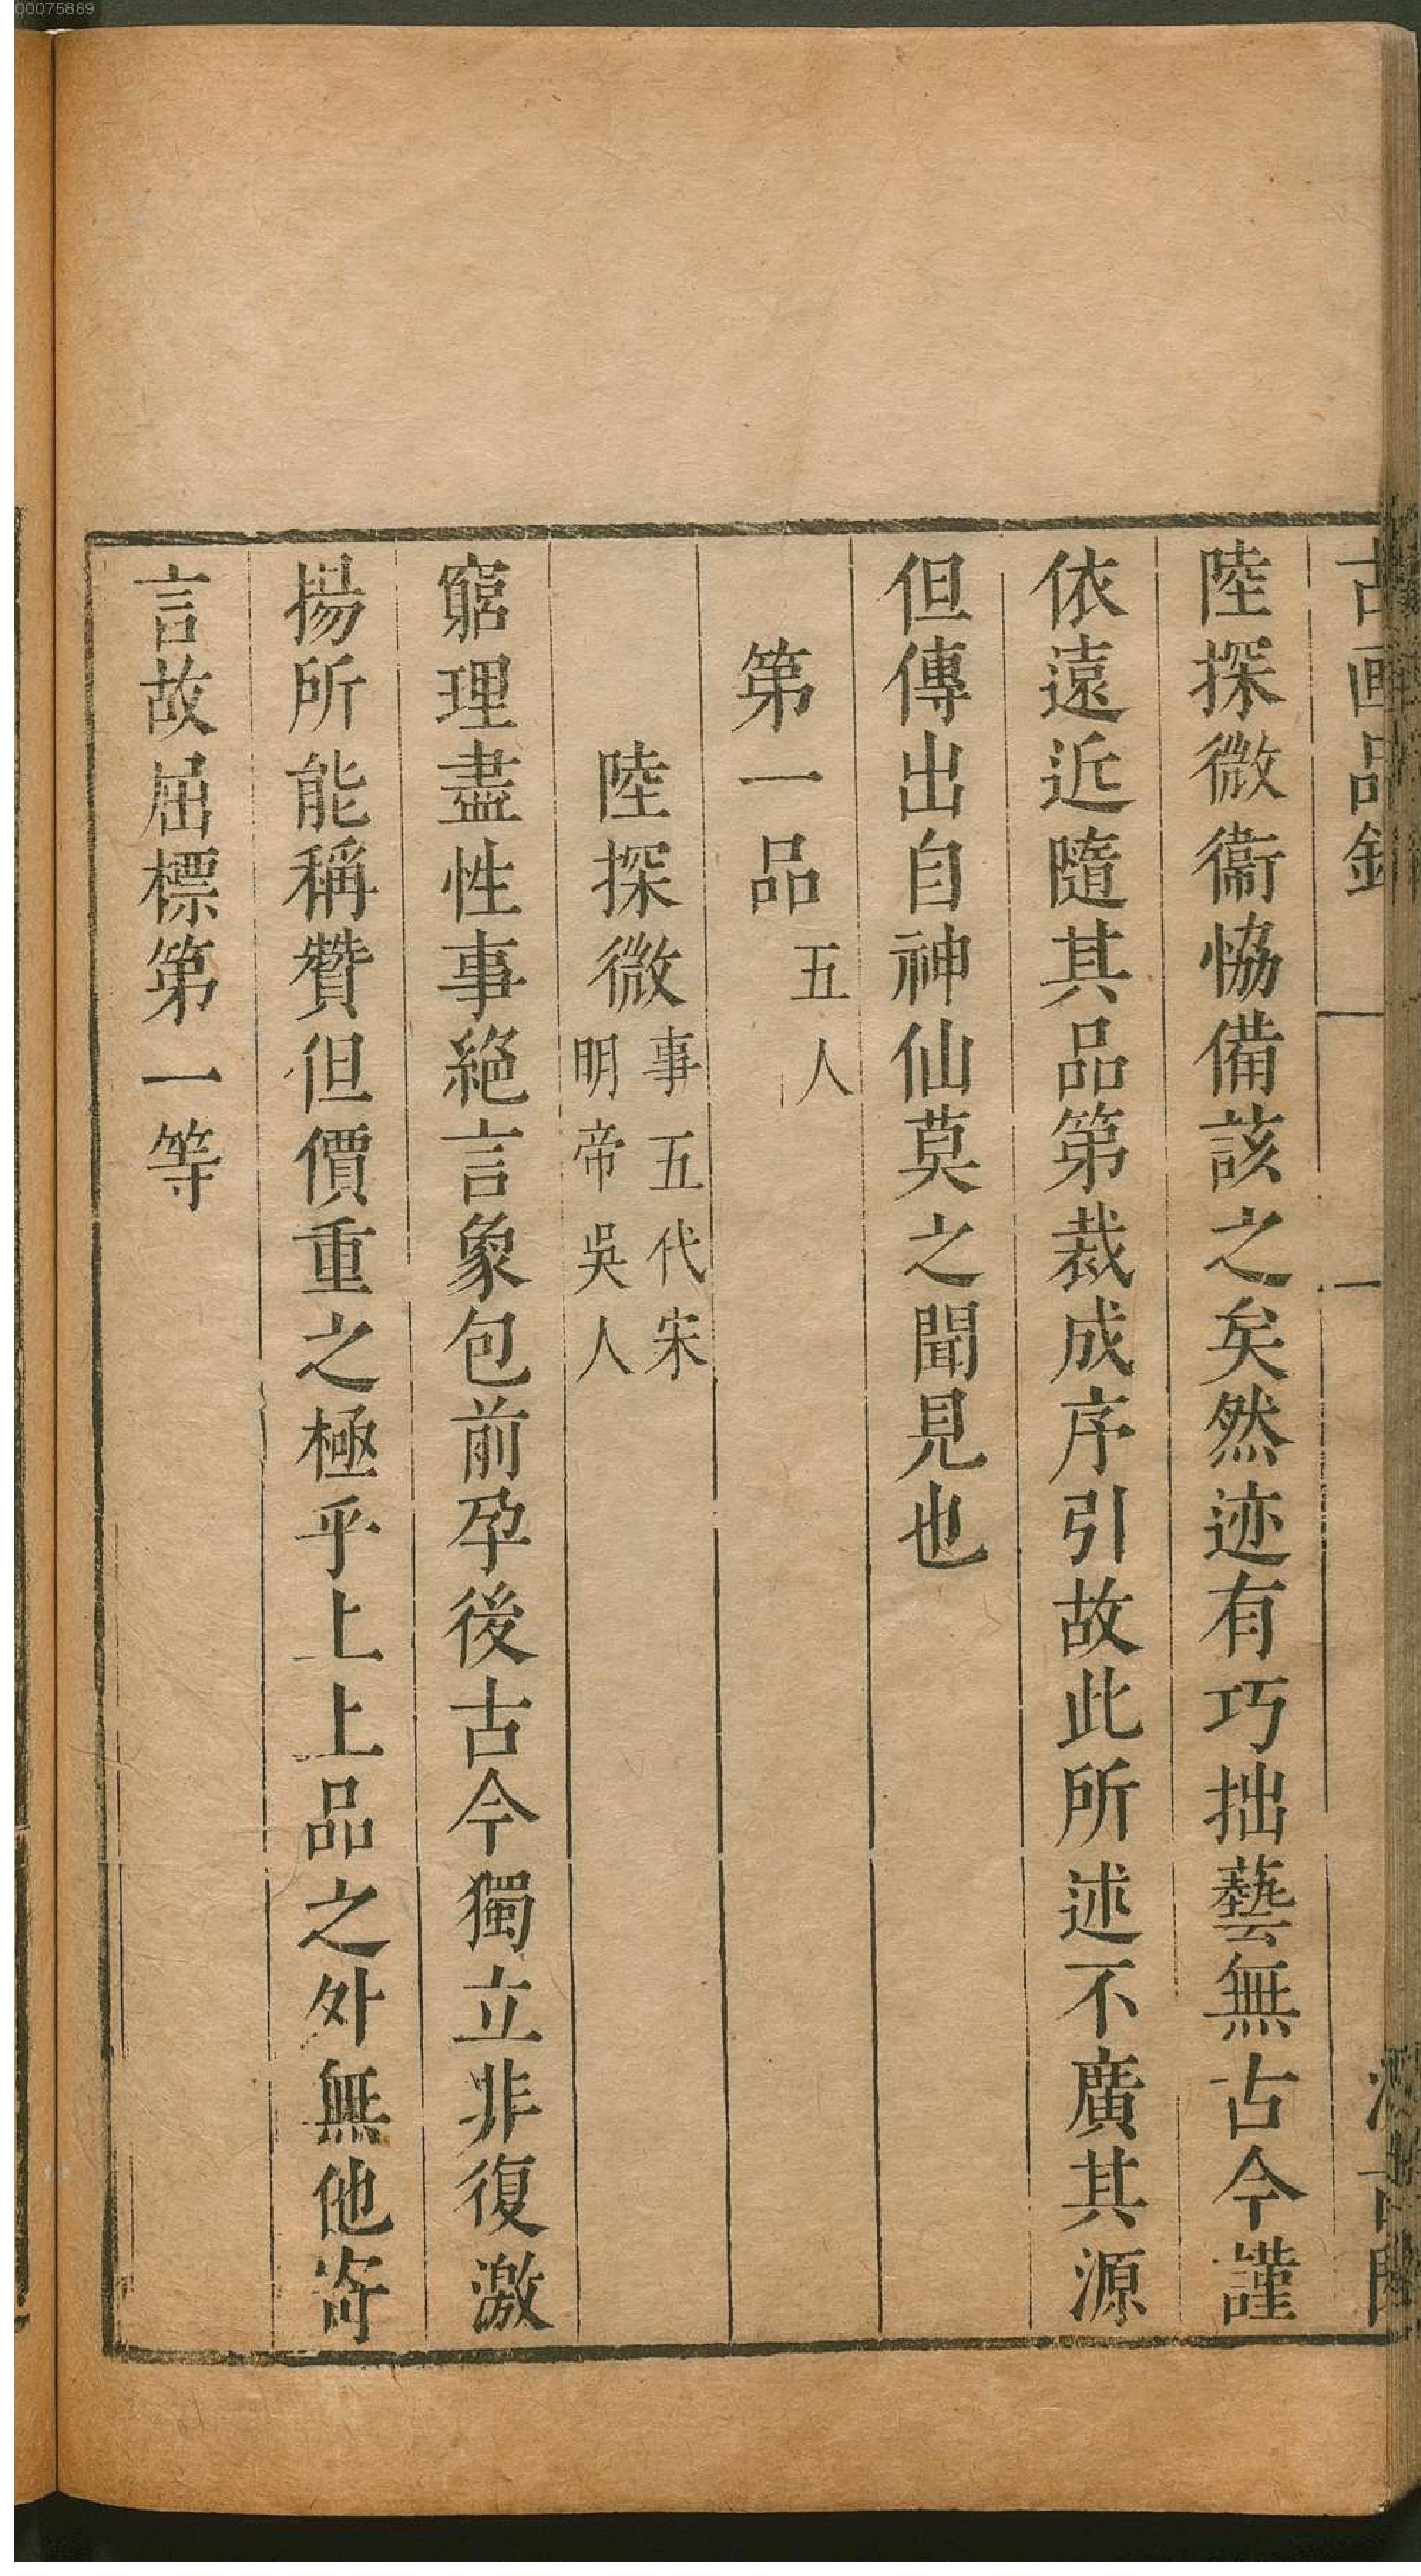 00075869
古画品錄
一
陸探微衞恊備該之矣然迹有巧拙藝無古今謹
依遠近隨其品第裁成序引故此所述不廣其源
但傳出自神仙莫之聞見也
第一品五人
陸探微事五代宋
明帝吳人
窮理盡性事絕言象包前孕後古今獨立非復激
揚所能稱贊但價重之極乎上上品之外無他寄
言故屈標第一等